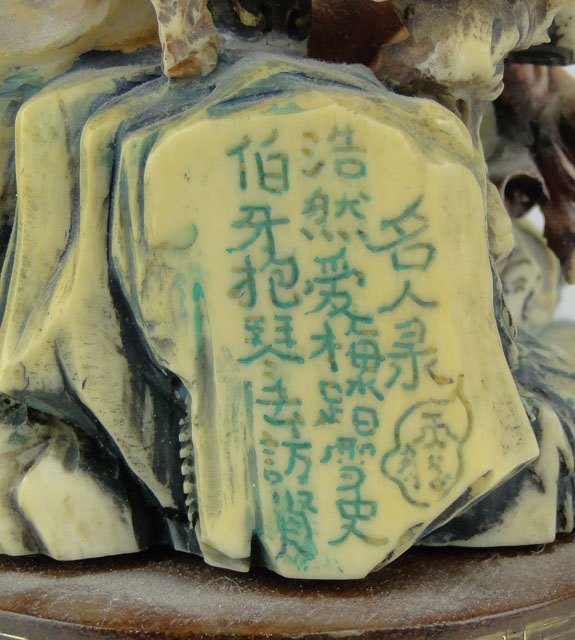 名人录
浩然愛梅踏雪史
伯牙抱琴去訪賢